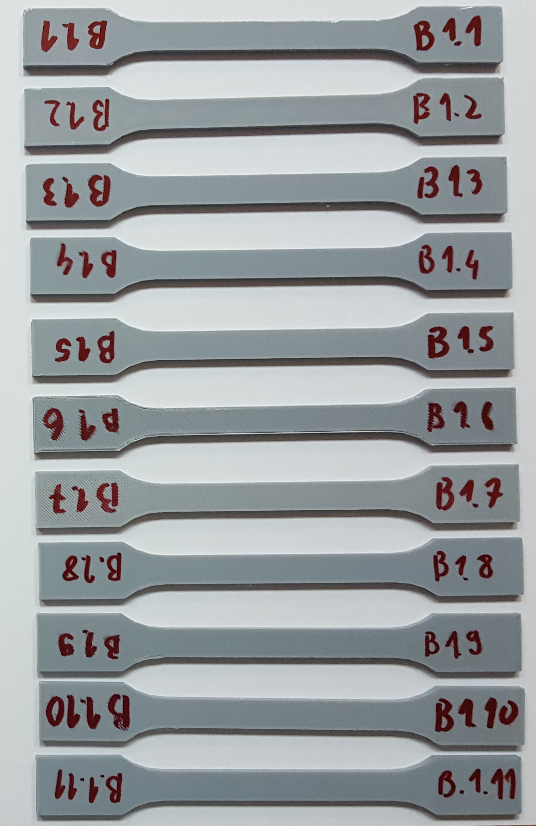 B1.1 B1.1
B1.2 B1.2
B1.3 B1.3
B1.4 B1.4
B1.5 B1.5
B1.6 B1.6
B1.7 B1.7
B.1.8 B1.8
B1.9 B1.9
B1.10 B1.10
B.1.11 B.1.11